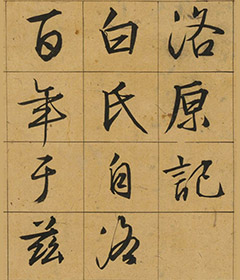 洛原記
白氏自洛
百年于茲